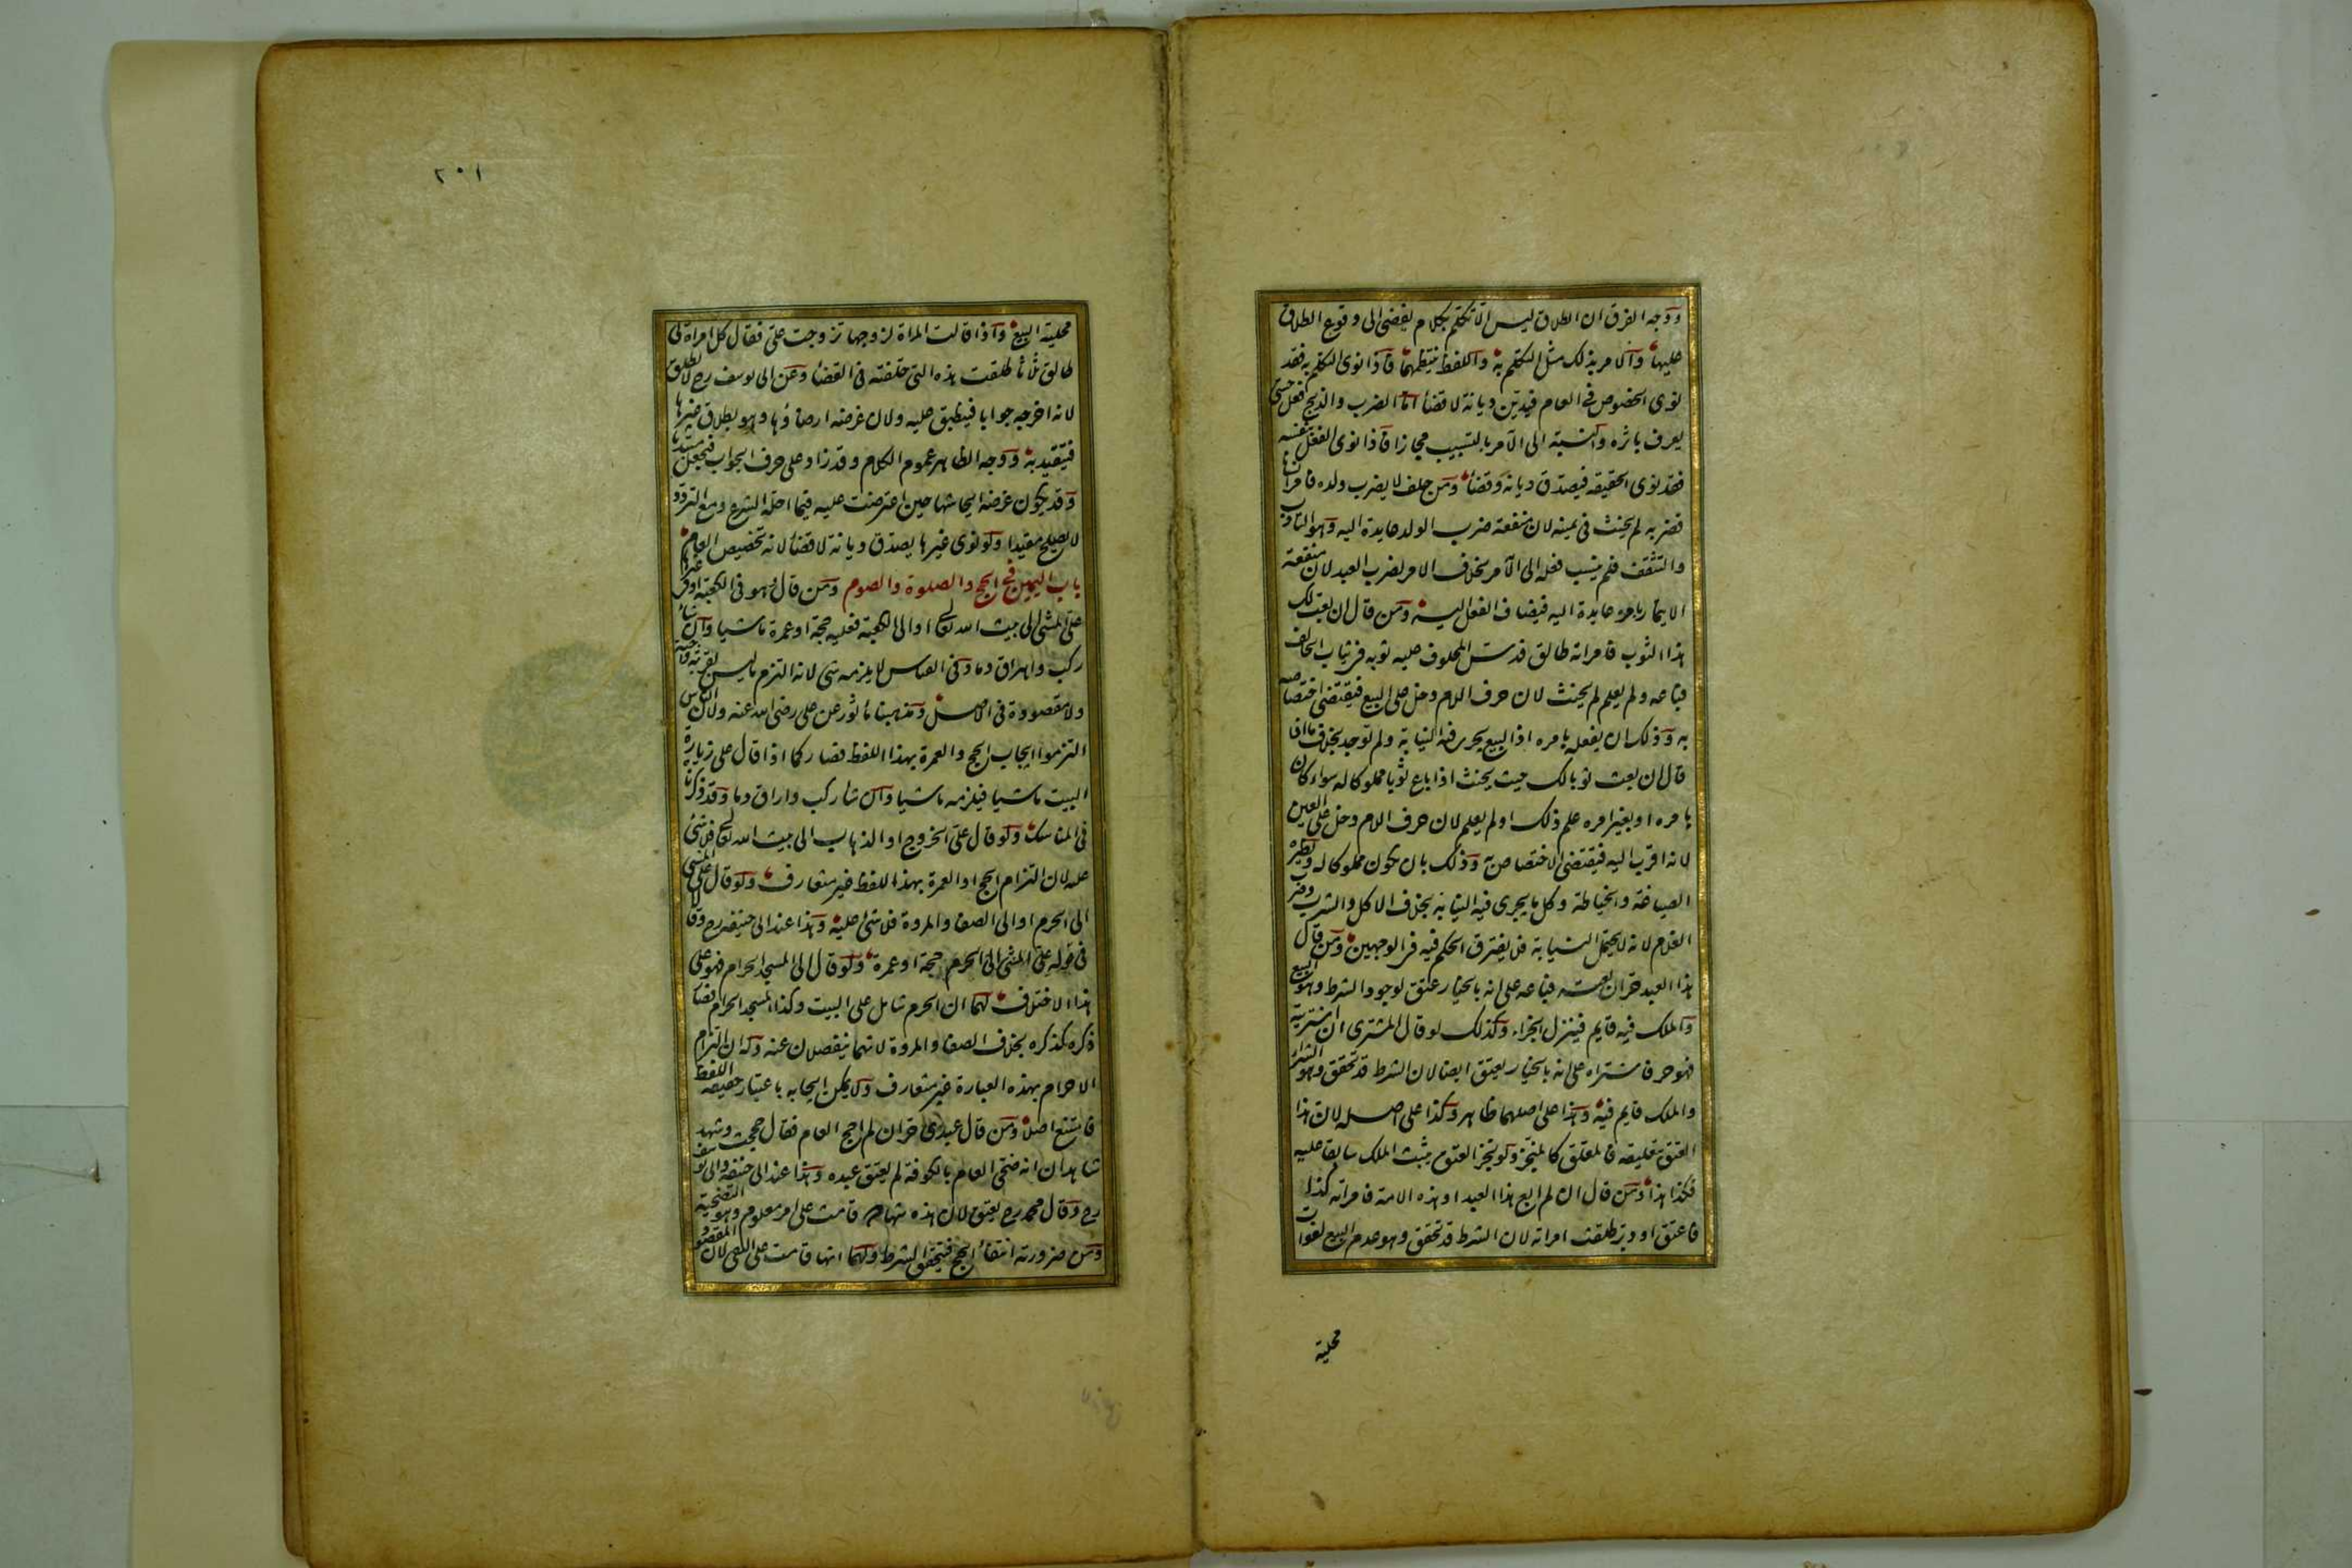 ووجه الفرق ان الطلاق ليس الا تكلم بكلام يفضي الى وقوع الطلاق
عليها والامر بذلك مثل التكلم به واللفظ ينتظمهما فاذا نوى التكلم به فقد
نوى الخصوص في العام فيدين ديانة لا قضاء اما الضرب والذبح فعل حسي
يعرف باثره والنسبة الى الآمر بالتسبيب مجازا فاذا نوى الفعل بنفسه
فقد نوى الحقيقه فيصدق ديانة وقضاء ومن حلف لا يضرب ولده فامر انسانا
فضربه لم يحنث فى يمينه لان منفعة ضرب الولد عايدة اليه وهو التادب
والتثقف فلم ينسب فعله الى الآمر بخلاف الامر لضرب العبد لان منفعة
الايتمار بامره عايدة اليه فيضاف الفعل اليه ومن قال ان بعت لك
هذا الثوب فامراته طالق فدس المحلوف عليه ثوبه فى ثياب الحالف
فباعه ولم يعلم لم يحنث لان حرف اللام دخل على البيع فيقتضى اختصاصه
به وذلك ان يفعله بامره اذ البيع يجرى فيه النيابة ولم توجد بخلاف ما اذا
قال ان بعت ثوبا لك حيث يحنث اذا باع ثوبا مملوكا له سواء كان
بامره او بغير امره علم ذلك او لم يعلم لان حرف اللام دخل على العين
لانه اقرب اليه فيقتضى الاختصاص به وذلك بان يكون مملوكا له ونظيره
الصياغة والخياطة وكل ما يجرى فيه النيابة بخلاف الاكل والشرب وضرب
الغلام لانه لا يحتمل النيابة فلا يفترق الحكم فيه فى الوجهين ومن قال
هذا العبد حر ان بعته فباعه على انه بالخيار عتق لوجود الشرط وهو البيع
والملك فيه قايم فينزل الجزاء وكذلك لو قال المشترى ان اشتريته
فهو حر فاشتراه على انه بالخيار يعتق ايضا لان الشرط قد تحقق وهو الشراء
والملك قايم فيه وهذا على اصلهما ظاهر وكذا على اصله لان هذا
العتق بتعليقه فالمعلق كالمنجز ولو نجز العتق يثبت الملك سابقا عليه
فكذا هذا ومن قال ان لم ابع هذا العبد او هذه الامة فامراته كذا
فاعتق او دبر طلقت امراته لان الشرط قد تحقق وهو عدم البيع لفوات
محلية
٢٠١
محلية البيع واذا قالت المراة لزوجها تزوجت على فقال كل امراة لى
طالق ثلاثا طلقت هذه التى حلفته فى القضاء وعن ابى يوسف رح لا تطلق
لانه اخرجه جوابا فينطبق عليه ولان غرضه ارضاؤها وهو بطلاق غيرها
فيتقيد به ووجه الظاهر عموم الكلام وقد زاد على حرف الجواب فيجعل مبتديا
وقد يكون غرضه ايحاشها حين اعترضت عليه فيما احله الشرع ومع التردد
لا يصلح مقيدا ولو نوى غيرها يصدق ديانة لا قضاء لانه تخصيص العام
باب اليمين في الحج والصلوة والصوم ومن قال وهو فى الكعبة او فى غيرها
على المشى الى بيت الله تعالى او الى الكعبة فعليه حجة او عمرة ماشيا وان شاء
ركب واهراق دما وفى القياس لا يلزمه شى لانه التزم ما ليس بقربة واجبة
ولا مقصودة فى الاصل ومذهبنا ماثور عن على رضى الله عنه ولان الناس
التزموا ايجاب الحج والعمرة بهذا اللفظ فصار كما اذا قال على زيارة
البيت ماشيا فيلزمه ماشيا وان شا ركب واراق دما وقد ذكرنا
فى المناسك ولو قال على الخروج او الذهاب الى بيت الله تعالى فلا شئ
عليه لان التزام الحج او العمرة بهذا اللفظ غير متعارف ولو قال على المشى
الى الحرم او الى الصفا والمروة فلا شئ عليه وهذا عند ابى حنيفه رح وقالا
فى قوله على المشى الى الحرم حجة او عمرة ولو قال الى المسجد الحرام فهو على
هذا الاختلاف لهما ان الحرم شامل على البيت وكذا المسجد الحرام فصار
ذكره كذكره بخلاف الصفا والمروة لانهما ينفصلان عنه وله ان التزام
الاحرام بهذه العبارة غير متعارف ولا يمكن ايجابه باعتبار حقيقه اللفظ
فامتنع اصلا ومن قال عبدى حر ان لم احج العام فقال حججت وشهد
شاهدان انه ضحى العام بالكوفة لم يعتق عبده وهذا عند ابى حنيفه وابى يوسف
رح وقال محمد رح يعتق لان هذه شهادة قامت على امر معلوم وهو التضحية
ومن ضرورته انتفاء الحج فيتحقق الشرط ولهما انها قامت على النفى لان المقصود